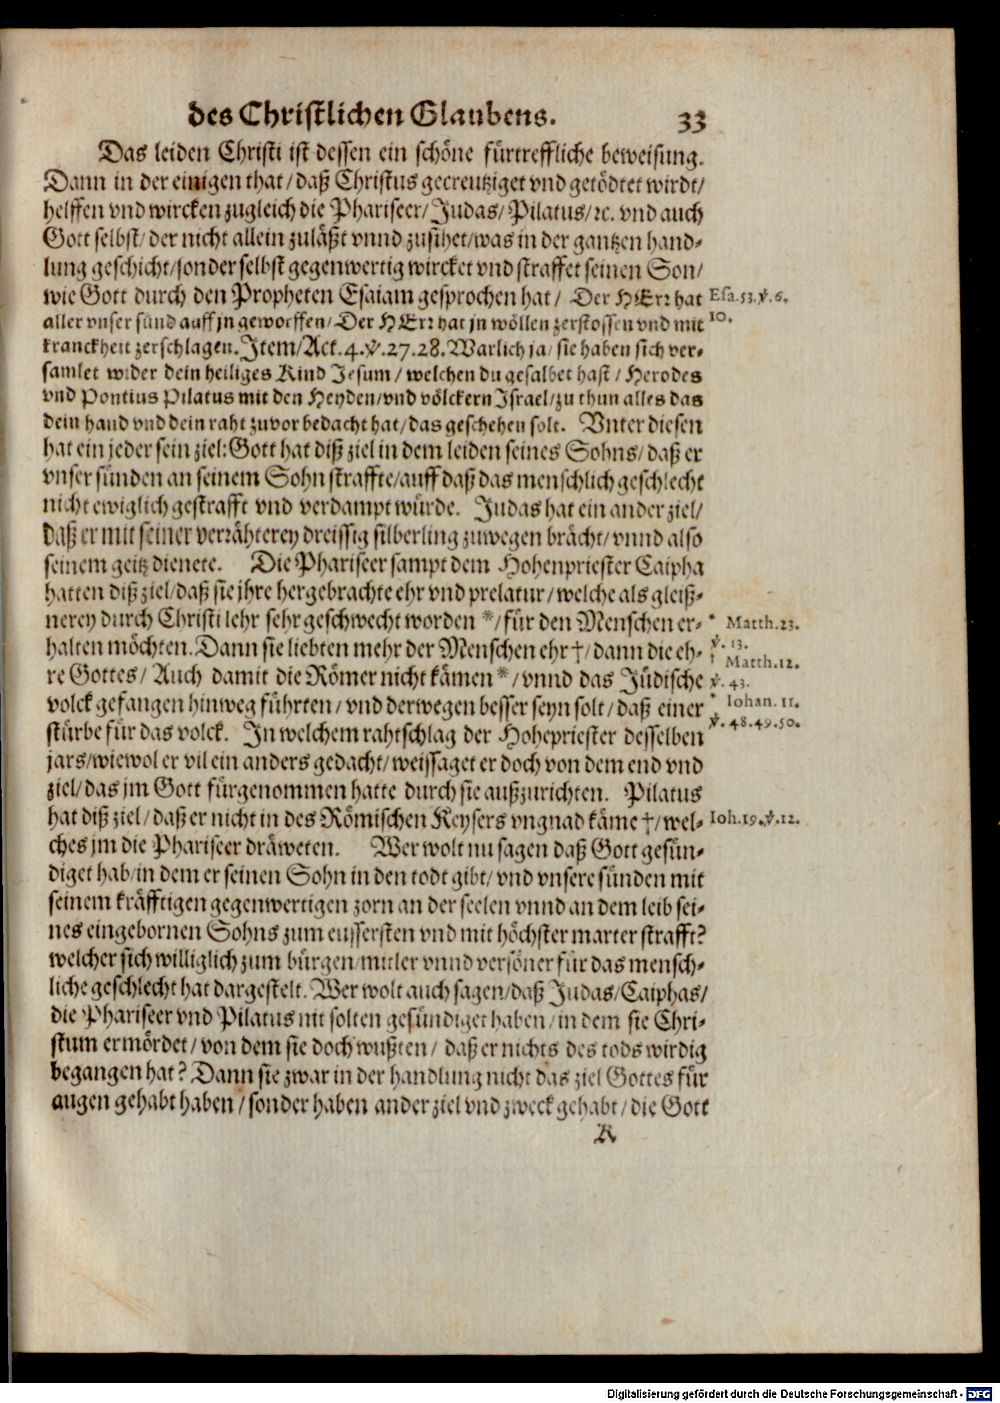 des Christlichen Glaubens. 33
Das leiden Christi ist dessen ein schöne fürtreffliche beweisung.
Dann in der einigen that/ daß Christus gecreutziget vnd getödtet wirdt/
helffen vnd wircken zugleich die Phariseer/ Judas/ Pilatus/ ꝛc. vnd auch
Gott selbst/ der nicht allein zuläßt vnnd zusihet/ was in der gantzen hand-
lung geschicht/ sonder selbst gegenwertig wircket vnd straffet seinen Son/
wie Gott durch den Propheten Esaiam gesprochen hat/ Der HErr hat
Esa. 53. ℣. 6.
aller vnser sünd auff jn geworffen/ Der HErr hat jn wöllen zerstossen vnd mit
10.
kranckheit zerschlagen. Item/ Act. 4. ℣. 27. 28. Warlich ja/ sie haben sich ver-
samlet wider dein heiliges Kind Jesum/ welchen du gesalbet hast/ Herodes
vnd Pontius Pilatus mit den Heyden/ vnd völckern Israel/ zu thun alles das
dein hand vnd dein raht zuvor bedacht hat/ das geschehen solt. Vnter diesen
hat ein jeder sein ziel: Gott hat diß ziel in dem leiden seines Sohns/ daß er
vnser sünden an seinem Sohn straffte/ auff daß das menschlich geschlecht
nicht ewiglich gestrafft vnd verdampt würde. Judas hat ein ander ziel/
daß er mit seiner verrähterey dreissig silberling zuwegen brächt/ vnnd also
seinem geitz dienete. Die Phariseer sampt dem Hohenpriester Caipha
hatten diß ziel/ daß sie jhre hergebrachte ehr vnd prelatur/ welche als gleiß-
nerey durch Christi lehr sehr geschwecht worden */ für den Menschen er-
* Matth. 23.
℣. 13.
halten möchten. Dann sie liebten mehr der Menschen ehr †/ dann die eh-
† Matth. 12.
re Gottes/ Auch damit die Römer nicht kämen */ vnnd das Jüdische
℣. 43.
volck gefangen hinweg führten/ vnd derwegen besser seyn solt/ daß einer
* Iohan. 11.
℣. 48. 49. 50.
stürbe für das volck. In welchem rahtschlag der Hohepriester desselben
jars/ wiewol er vil ein anders gedacht/ weissaget er doch von dem end vnd
ziel/ das jm Gott fürgenommen hatte durch sie außzurichten. Pilatus
hat diß ziel/ daß er nicht in des Römischen Keysers vngnad käme †/ wel-
Ioh. 19. ℣. 12.
ches jm die Phariseer dräweten. Wer wolt nu sagen daß Gott gesün-
diget hab/ in dem er seinen Sohn in den todt gibt/ vnd vnsere sünden mit
seinem kräfftigen gegenwertigen zorn an der seelen vnnd an dem leib sei-
nes eingebornen Sohns zum eussersten vnd mit höchster marter strafft?
welcher sich williglich zum bürgen/ mitler vnnd versöner für das mensch-
liche geschlecht hat dargestelt. Wer wolt auch sagen/ daß Judas/ Caiphas/
die Phariseer vnd Pilatus nit solten gesündiget haben/ in dem sie Chri-
stum ermördet/ von dem sie doch wußten/ daß er nichts des tods wirdig
begangen hat? Dann sie zwar in der handlung nicht das ziel Gottes für
augen gehabt haben/ sonder haben ander ziel vnd zweck gehabt/ die Gott
K
Digitalisierung gefördert durch die Deutsche Forschungsgemeinschaft - DFG